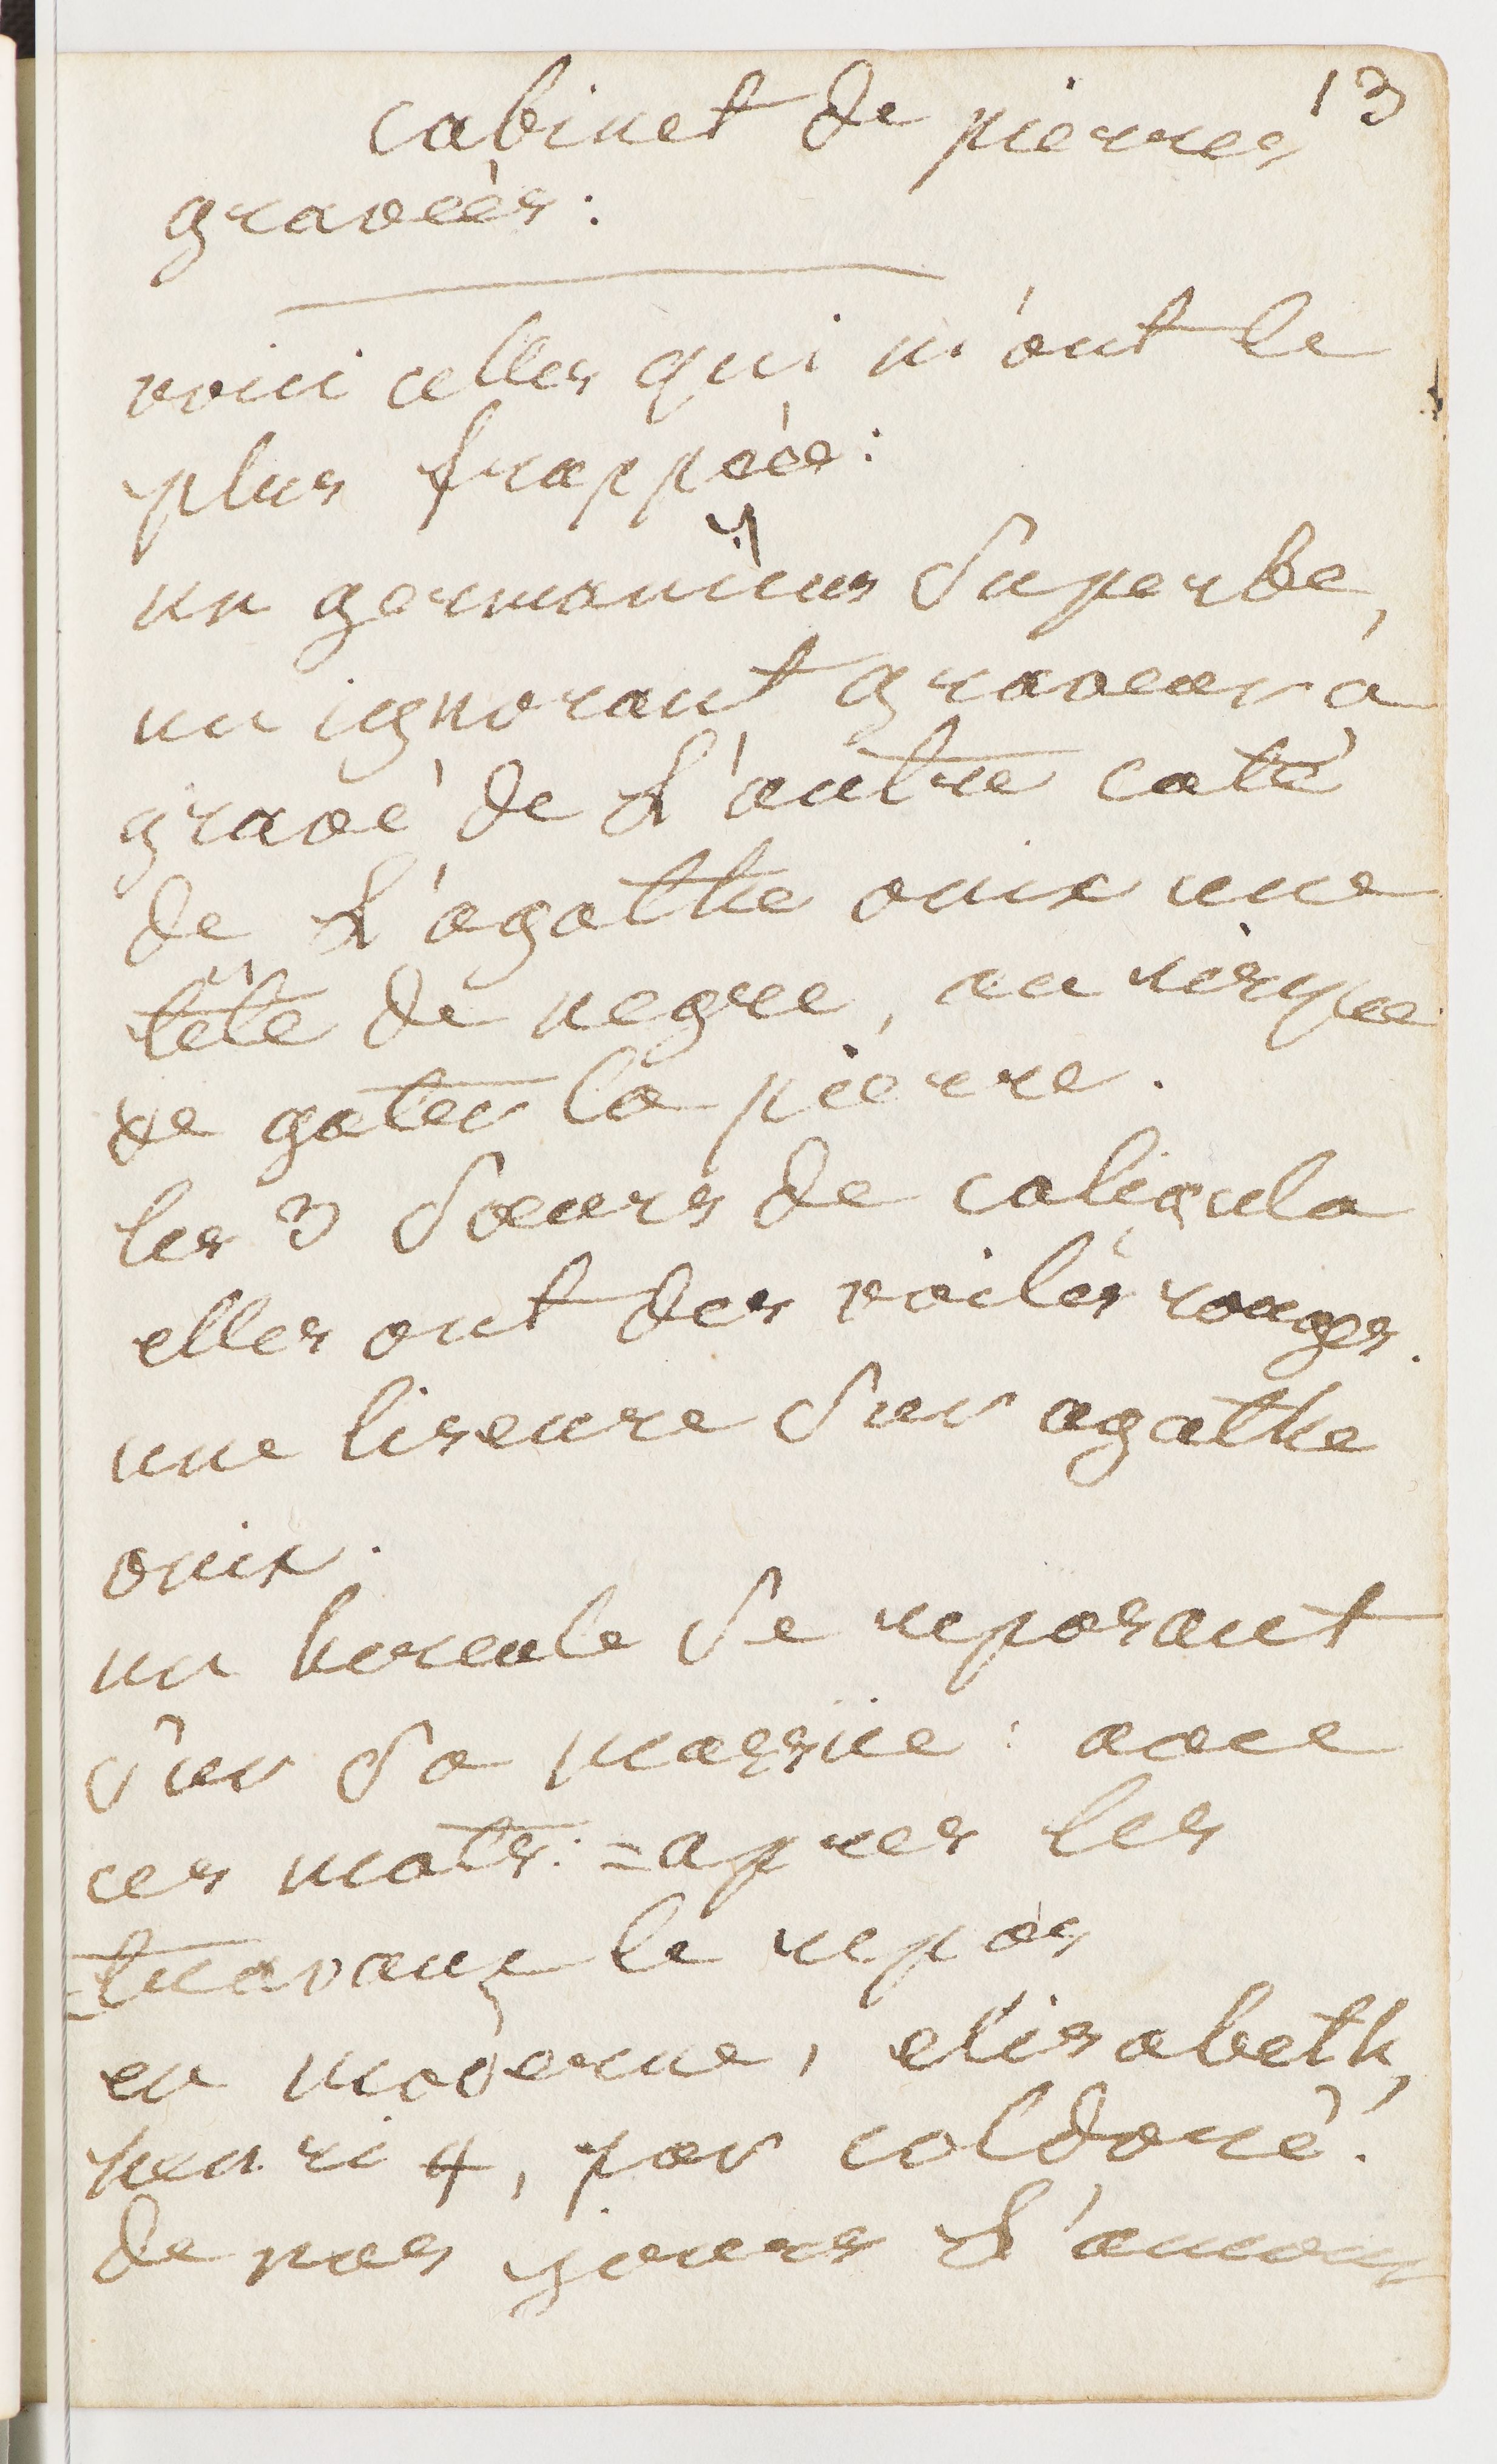 13
cabinet de pierres
gravées:
voici celles qui m'ont le
plus frappée:
un germanicus superbe,
un ignorant graveur a
gravé de l'autre coté
de l'agathe onix une
tête de negre, au risque
de gater la pierre.
les 3 soeurs de caligula
elles ont des voiles rouges.
une liseuse sur agathe
onix.
un hercule se reposant
sur sa massue: avec
ces mots: =apres les
=travaux le repos
en moderne, elisabeth,
henri 4, par coldoré.
de nos jours l'amour